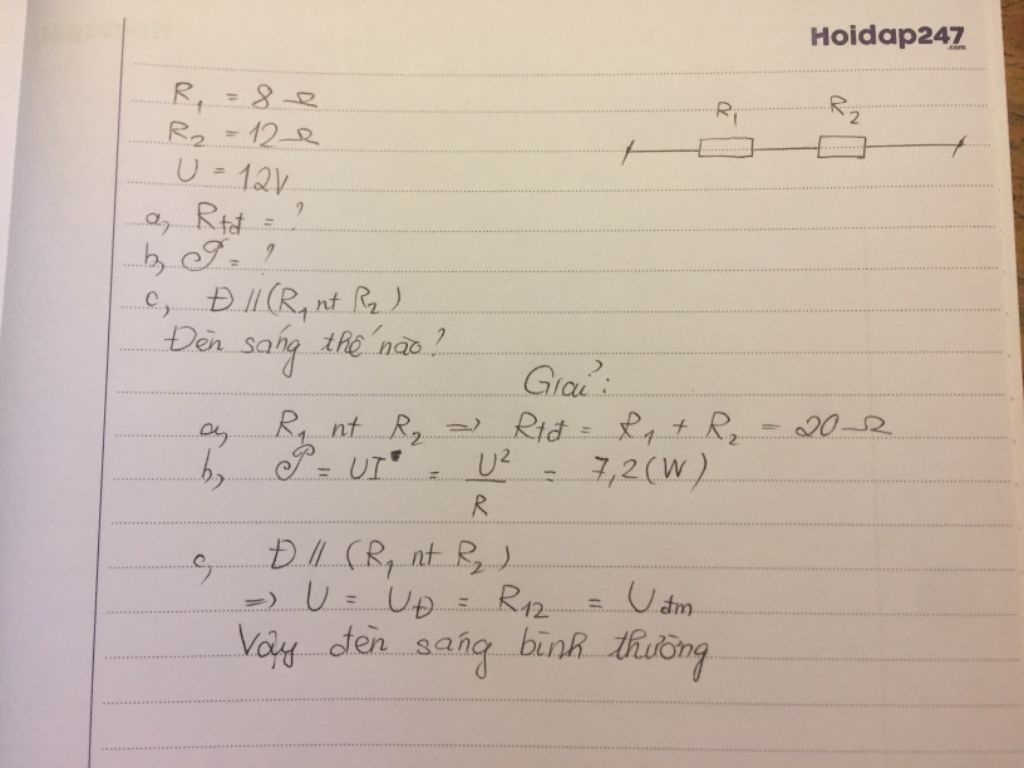 Hoidap247
.com
R₁ = 8 Ω
R₁ R₂
R₂ = 12 Ω
U = 12V
a, Rtđ = ?
b, 𝒫 = ?
c, Đ // (R₁ nt R₂)
Đèn sáng thế nào?
Giải:
a, R₁ nt R₂ => Rtđ = R₁ + R₂ = 20 Ω
b, 𝒫 = UI = U²/R = 7,2 (W)
c, Đ // (R₁ nt R₂)
=> U = UĐ = R₁₂ = Uđm
Vậy đèn sáng bình thường